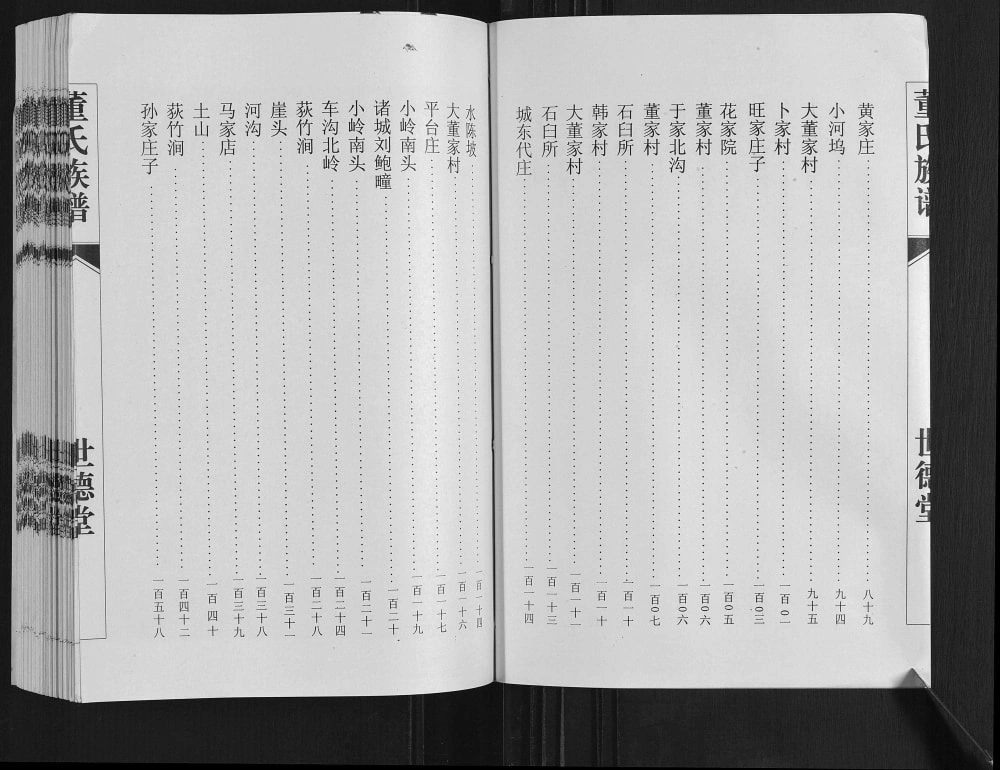 董氏族谱
世德堂
黄家庄 八十九
小河坞 九十四
大董家村 九十五
卜家村 一百0二
旺家庄子 一百0三
花家院 一百0五
董家村 一百0六
于家北沟 一百0六
董家村 一百0七
石臼所 一百一十
韩家村 一百一十
大董家村 一百一十一
石臼所 一百一十三
城东代庄 一百一十四
水陈坡 一百一十四
大董家村 一百一十六
平台庄 一百一十七
小岭南头 一百一十九
诸城刘鲍疃 一百二十
小岭南头 一百二十一
车沟北岭 一百二十四
荻竹涧 一百二十八
崖头 一百三十一
河沟 一百三十八
马家店 一百三十九
土山 一百四十
荻竹涧 一百四十二
孙家庄子 一百五十八
董氏族谱
世德堂